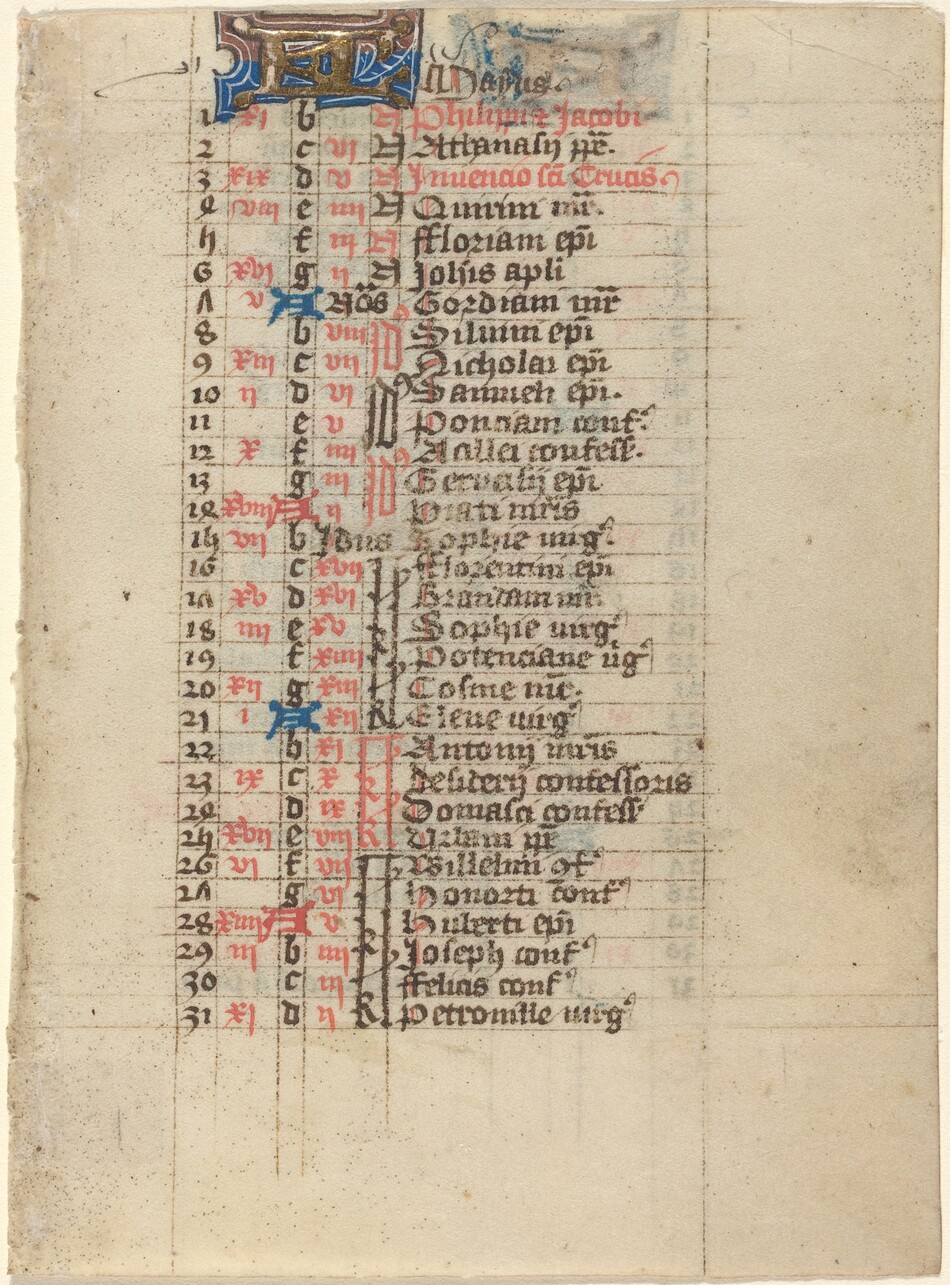 A Mayus.
1 xi b A Philippi et Jacobi
2 c vi A Athanasij ppē.
3 xix d v A Jnuencio scī Crucis
4 viii e iiii A Quirini mr̄.
5 f iii A ffloriani epī
6 xvi g ii A Johīs apli
7 v A Nōs Gordiani mr̄
8 b viii Siluini epī
9 xiii c vii Nicholai epī
10 ii d vi epī.
11 e v Ponciani conf
12 x f iiii Acillei confess.
13 g iii Geruasij epī
14 xviii A ii mr̄is
15 vii b Jdus Sophie uirg
16 c xvii fflorentini epī
17 xv d xvi Brandani mr̄
18 iiii e xv Sophie uirg
19 f xiiii Potenciane ūg
20 xii g xiii Cosme mr̄.
21 i A xii Kl Elene uirg
22 b xi Antonij mr̄is
23 ix c x Desiderij confessoris
24 d ix Domasci confess
25 xvii e viii Kl Urbani pp̄
26 vi f vii Willelmi 9f
27 g vi Honorti conf
28 xiiii A v Huberti epī
29 iii b iiii Joseph conf
30 c iii ffelicis conf
31 xi d ii Kl Petronille uirg